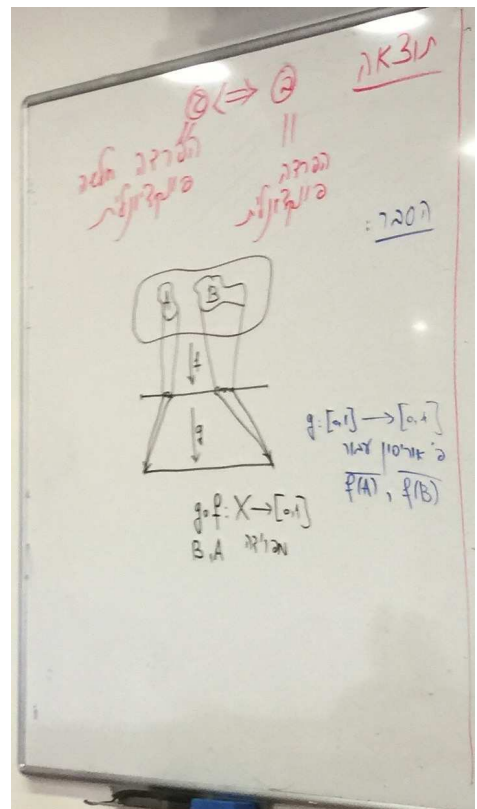 תוצאה
הפרדה
פונקציונלית
הפרדה חלשה
פונקציונלית
הסבר:
A
B
f
g
g: [0,1] → [0,1]
פ' אוריסון עבור
f(A), f(B)
g∘f: X → [0,1]
מפרידה B, A